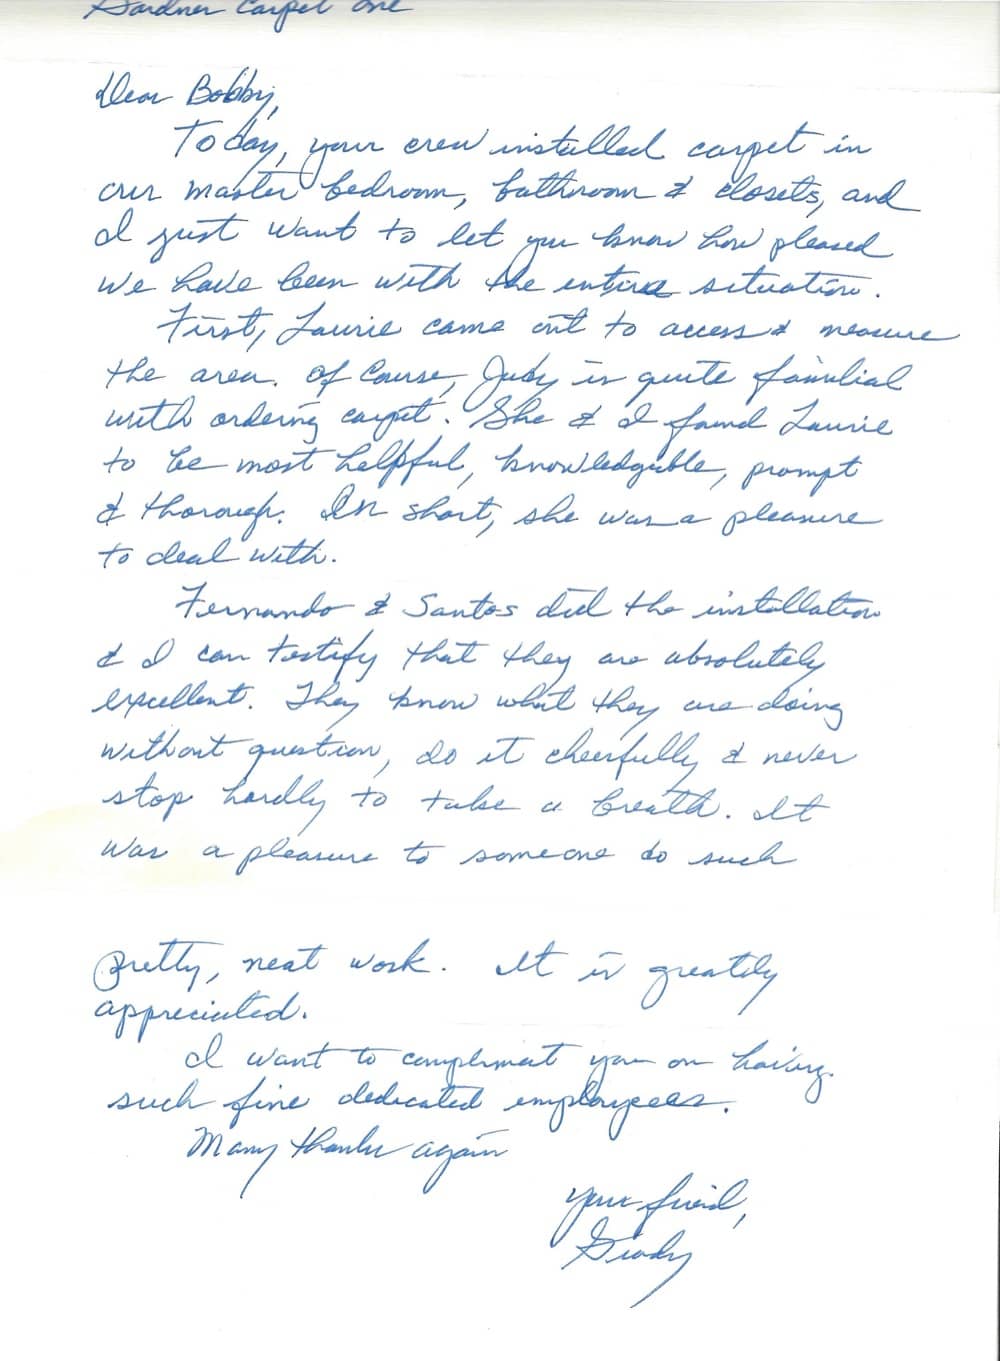 Gardner Carpet One
Dear Bobby,
Today, your crew installed carpet in
our master bedroom, bathroom & closets, and
I just want to let you know how pleased
we have been with the entire situation.
First, Laurie came out to access & measure
the area. Of Course, Judy is quite familial
with ordering carpet. She & I found Laurie
to be most helpful, knowledgible, prompt
& thorough. In short, she was a pleasure
to deal with.
Fernando & Santos did the installation
& I can testify that they are absolutely
excellent. They know what they are doing
without question, do it cheerfully & never
stop hardly to take a breath. It
was a pleasure to someone do such
pretty, neat work. It is greatily
appreciated.
I want to compliment you on having
such fine dedicated employees.
Many thanks again
Your friend,
Grady